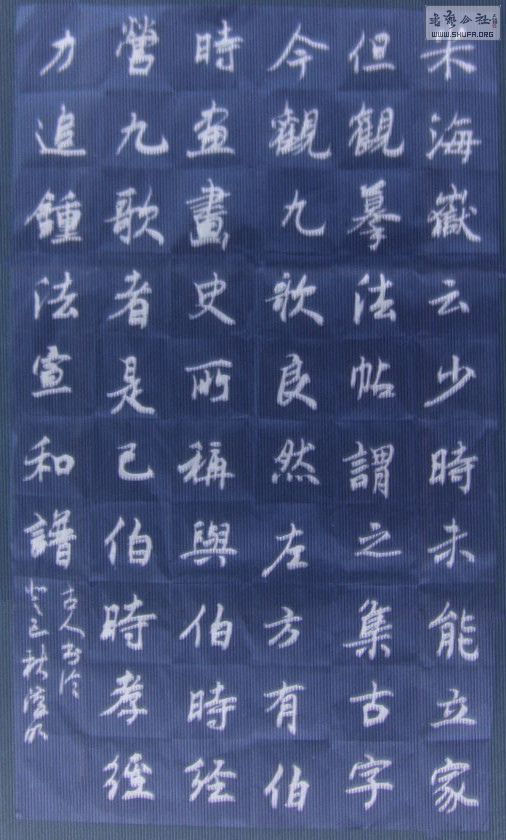 米海嶽云少時未能立家
但觀摹法帖謂之集古字
今觀九歌良然左方有伯
時画畫史所稱與伯時经
營九歌者是已伯時孝經
力追鍾法宣和譜
古人书论
癸巳秋
书艺公社
WWW.SHUFA.ORG